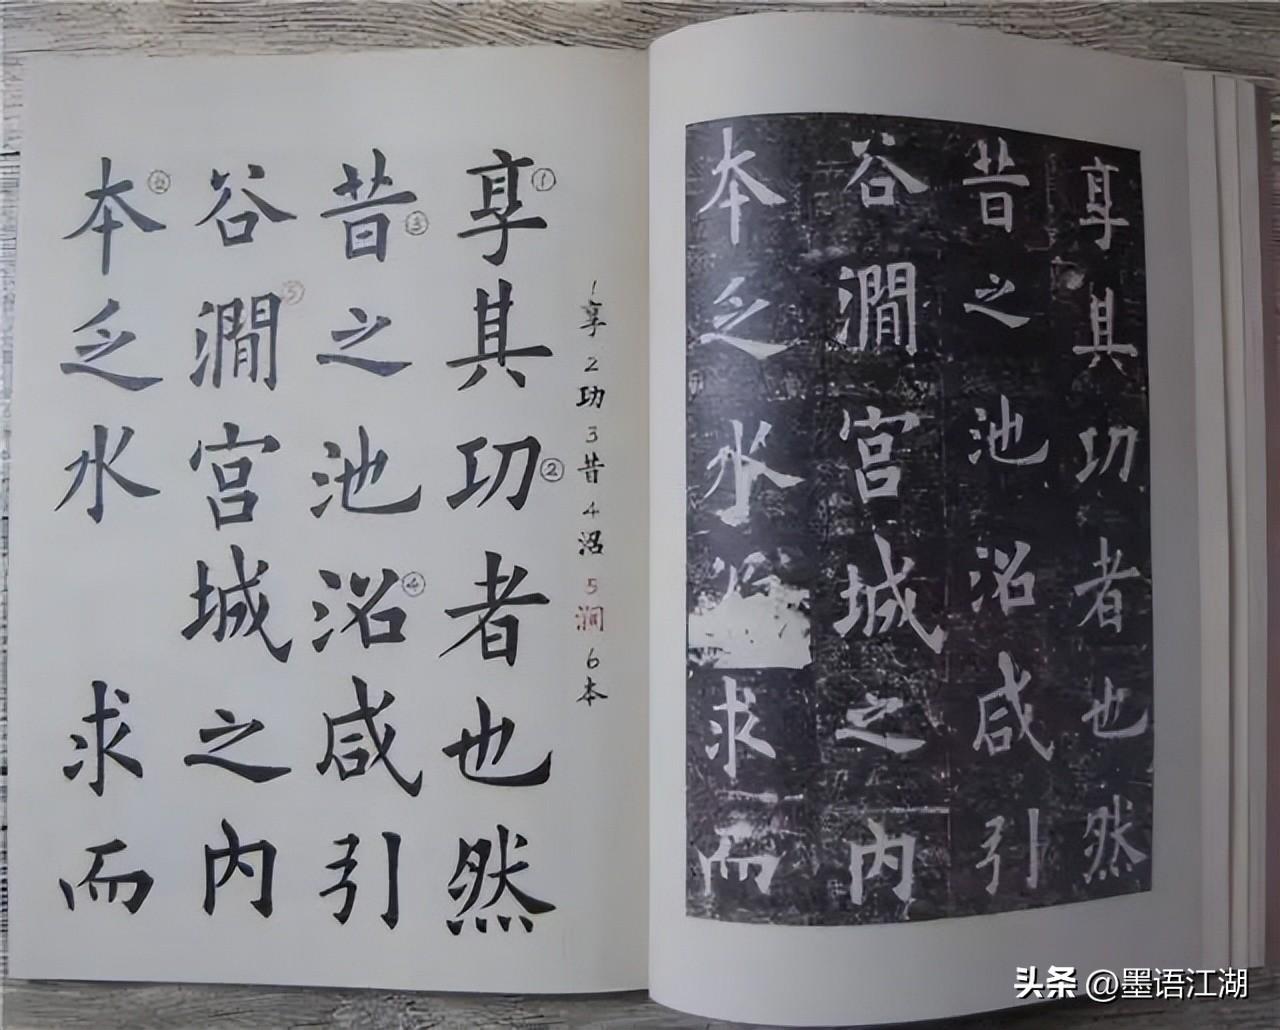 1享2功3昔4沼5澗6本
享①其功②者也然
昔③之池沼④咸引
谷澗⑤宫城之内
本⑥乏水 求而
享其功者也然
昔之池沼咸引
谷澗宫城之内
本乏水 求而
头条 @墨语江湖